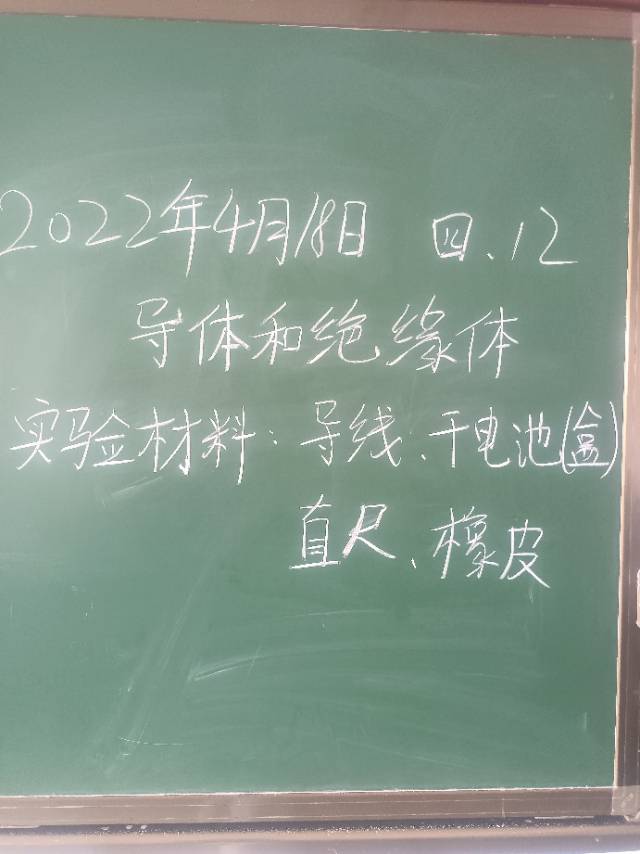 2022年4月18日 四、12
导体和绝缘体
实验材料：导线、干电池(盒)
直尺、橡皮